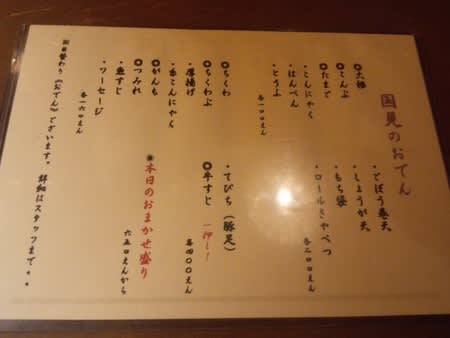 国見のおでん
◎大根
◎こんぶ
◎たまご
・こんにゃく
・はんぺん
・とうふ
各一〇〇えん
・ごぼう巻天
・しょうが天
・もち袋
・ロールきゃべつ
各二〇〇えん
◎ちくわ
◎ちくわぶ
・厚揚げ
・糸こんにゃく
◎がんも
◎つみれ
・魚すじ
・ソーセージ
各一六〇えん
・てびち（豚足）
◎牛すじ 一押し！
各四〇〇えん
本日のおまかせ盛り
六五〇えんから
日替わり《おでん》ございます。 詳細はスタッフまで。。